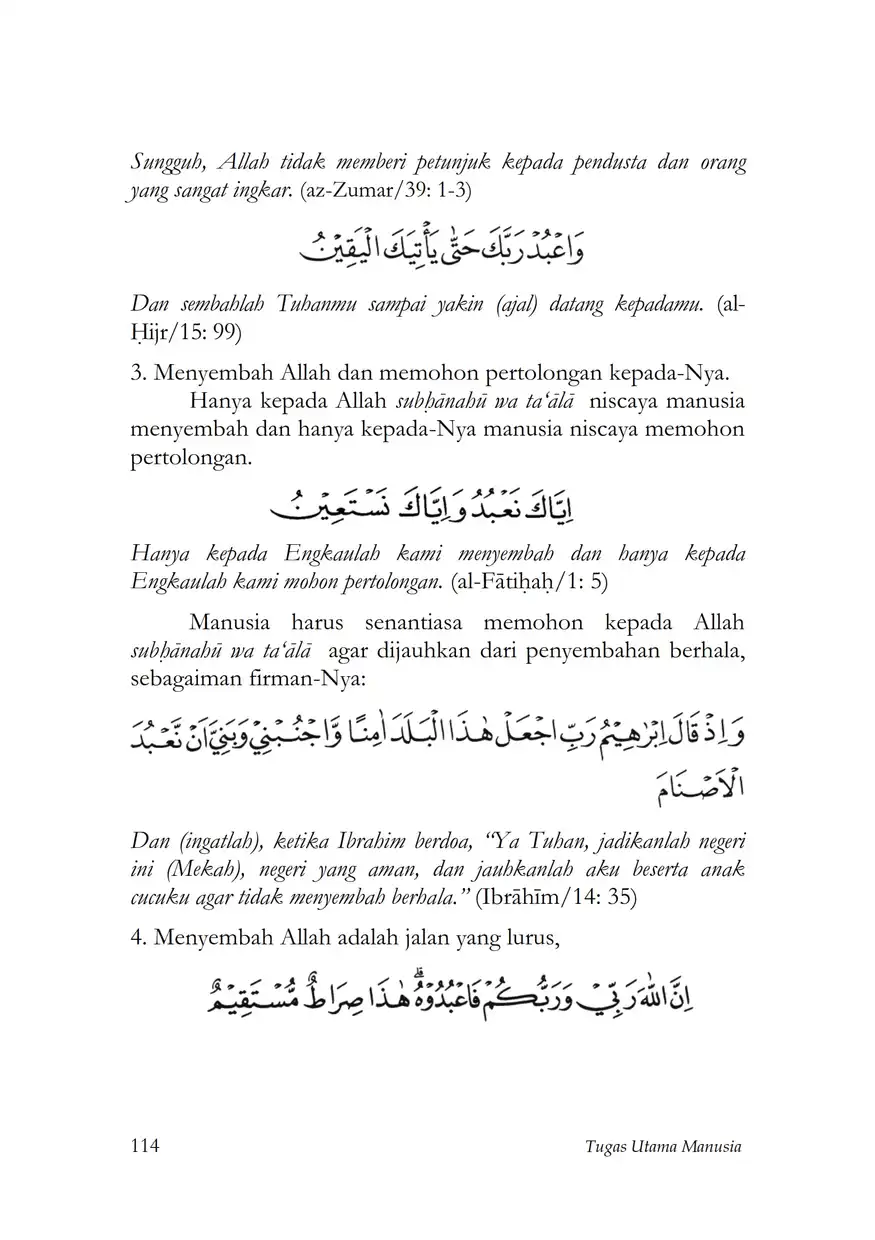 Sungguh, Allah tidak memberi petunjuk kepada pendusta dan orang
yang sangat ingkar. (az-Zumar/39: 1-3)
وَاعْبُدْ رَبَّكَ حَتّٰى يَأْتِيَكَ الْيَقِيْنُ
Dan sembahlah Tuhanmu sampai yakin (ajal) datang kepadamu. (al-
Ḥijr/15: 99)
3. Menyembah Allah dan memohon pertolongan kepada-Nya.
Hanya kepada Allah subḥānahū wa ta‘ālā niscaya manusia
menyembah dan hanya kepada-Nya manusia niscaya memohon
pertolongan.
اِيَّاكَ نَعْبُدُ وَاِيَّاكَ نَسْتَعِيْنُ
Hanya kepada Engkaulah kami menyembah dan hanya kepada
Engkaulah kami mohon pertolongan. (al-Fātiḥaḥ/1: 5)
Manusia harus senantiasa memohon kepada Allah
subḥānahū wa ta‘ālā agar dijauhkan dari penyembahan berhala,
sebagaiman firman-Nya:
وَاِذْ قَالَ اِبْرٰهِيْمُ رَبِّ اجْعَلْ هٰذَا الْبَلَدَ اٰمِنًا وَّاجْنُبْنِيْ وَبَنِيَّ اَنْ نَّعْبُدَ
الْاَصْنَامَ
Dan (ingatlah), ketika Ibrahim berdoa, “Ya Tuhan, jadikanlah negeri
ini (Mekah), negeri yang aman, dan jauhkanlah aku beserta anak
cucuku agar tidak menyembah berhala.” (Ibrāhīm/14: 35)
4. Menyembah Allah adalah jalan yang lurus,
اِنَّ اللّٰهَ رَبِّيْ وَرَبُّكُمْ فَاعْبُدُوْهُ ۗ هٰذَا صِرَاطٌ مُّسْتَقِيْمٌ
114 Tugas Utama Manusia